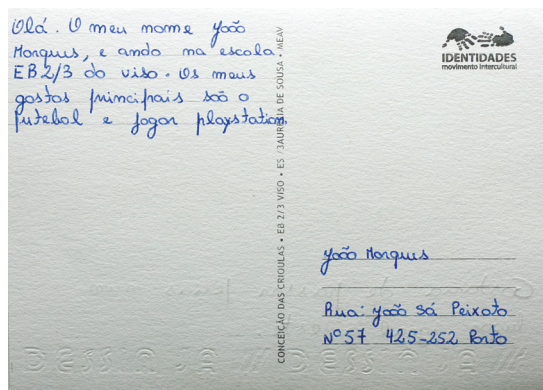 Olá. O meu nome João
Marques, e ando na escola
EB 2/3 do viso. Os meus
gostos principais são o
futebol e jogar playstation.
CONCEIÇÃO DAS CRIOULAS • EB 2/3 VISO • ES /3 AURÉLIA DE SOUSA • MEAV
IDENTIDADES
movimento intercultural
João Marques
Rua: João Sá Peixoto
Nº 57 425-252 Porto